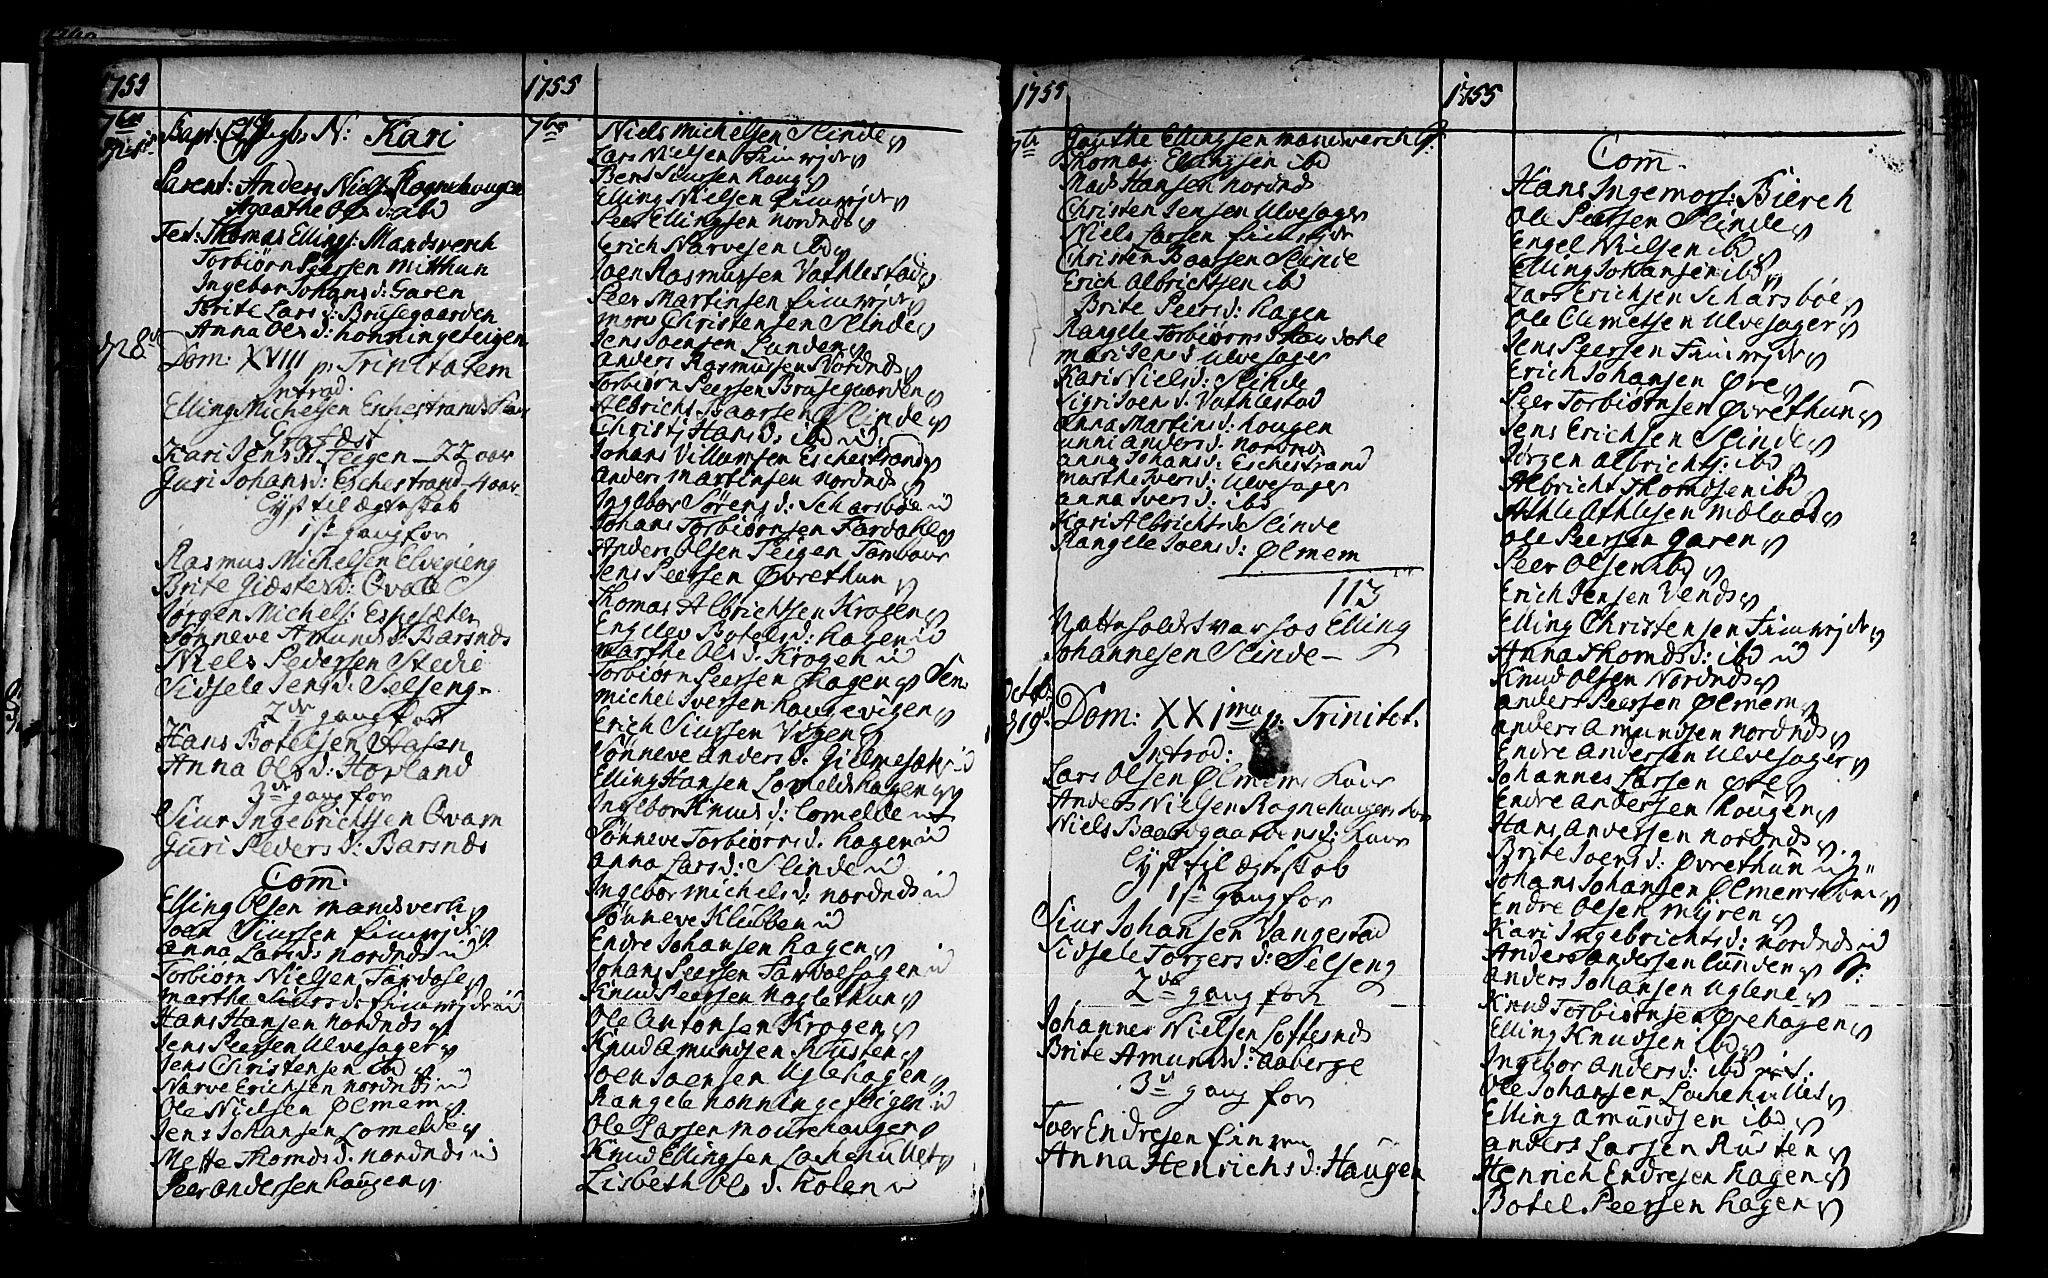 1755
7br
Bapt: N: Kari
Parent: Anders Niels: Rognehougen
Agaathe Ols d: ibd
Test: Thomas Ellings: Mandsverch
Torbiørn Peersen Mitthun
Ingebor Johans d: Garen
Brite Lars d: Brusegaarden
Anna Ols d: honningeteigen
d 28de
Dom: XVIII p: Trinitatem
Introd:
Elling Michelsen Eschestrands Kone
Grafæst
Kari Jens d: Teigen 22 aar
Guri Johans d: Eschestrand 4 aar
Lyst til ægteskab
1st gang for
Rasmus Michelsen Elvegieng
Brite Giæstes d: Qvale
Jørgen Michels: Espesæter
Sønneve Amunds d: Barsnds
Niels Pedersen Stedie
Sidsele Jens d: Selseng
2de gang for
Hans Botelsen
Anna Ols d: Horland
3de gang for
Siur Ingebrichtsen Qvam
Guri Peders d: Barsnds
Com:
Elling Olsen mandsverk
Joen Siursen fimrejte
Anna Lars d: nordnds id
Torbiørn Nielsen Fardale
Marthe Siurs d: fimrejte id
Hans Hansen nordnds
Jens Peersen Ulvesager
Jens Christensen ibd
Narve Erichsen nordnds id
Ole Nielsen Ølmem
Jens Johansen Lomelde
Mette Thomds d: nordnds id
Peer Andersen haugen
1755
7br
Niels Michelsen Slinde
Lars Nielsen Fimrejte
Bent Siursen haug
Elling Nielsen fimrejte
Peer Ellingsen nordnds
Erich Narvesen ibd
Joen Rasmussen Vathlestad
Peer Martinsen fimrejte
Mons Christensen Slinde
Jens Joensen Lunden
Anders Rasmussen Nordnds
Torbiørn Peersen Brusegaarden
Albricht Baarsen Slinde
Christj Hans d: ibd id
Johans Villumsen Eschestrand
Anders Martinsen nordnds
Ingebor Sørens d: Scharsbøe id
Johans Torbiørnsen Fardahl
Anders Olsen Teigen Tambour
Jens Peersen Øvrethun
Thomas Albrichtsen Krogen
Engelev Botels d: hagen id
Marthe Ols d: Krogen id
Torbiørn Peersen hagen Sen:
Michel Iversen haugevigen
Erich Siursen Vigen
Sønneve Anders d: Gielmesæter id
Elling Hansen Lomeldshagen
Ingebor Knuds d: Lomelde id
Sønneve Torbiørns d: hagen id
Anna Lars d: Slinde id
Ingebor Michels d: nordnds id
Sønneve Klubben id
Endre Johansen hagen
Johans Peersen hagen id
Knud Peersen haglethun
Ole Antonsen Krogen
Knud Amundsen Rusten
Joen Joensen Uglehagen
Rangele honningeteigen id
Ole Larsen Mourehaugen
Knud Ellingsen Lachehullet
Lisbeth Ols d: Kolen id
1755
7br
Gauthe Ellingsen Mandsverch
Thomas Ellingsen ibd
Mads Hansen nordnds
Christen Jensen Ulvesager
Niels Larsen fimrejte
Christen Baarsen Slinde
Erich Albrichtsen ibd
Brite Peers d: Hagen
Rangele Torbiørns d:
Mari Jens d: Ulvesager
Kari Niels d: Slinde
Sigri Joens d: Vathlestad
Anna Martins d: hougen
Unni Anders d: nordnds
Anna Johans d: Eschestrand
Marthe Ivers d: Ulvesager
Anna Ivers d: ibd
Kari Albrichts d: Slinde
Rangele Joens d: Ølmem
113
Natteholdet var hos Elling
Johannesen Slinde
Octob:
d 19de
Dom: XXIma p: Trinitat.
Introd:
Lars Olsen Ølmems Kone
Anders Nielsen Rognehaugens Kone
Niels Baardgaardens d: Kone
Lyst til ægteskab
1st gang for
Siur Johansen Vangestad
Sidsele Torgers d: Selseng
2de gang for
Johannes Nielsen Loftesnds
Brite Amunds d: Aaberge
3d gang for
Iver Endresen Fimren
Anna Henrichs d: Haugen
1755
Com.
Hans Ingemors: Bierch
Ole Peersen Slinde
Engel Nielsen ibd
Elling Johansen ibd
Lars Erichsen Scharsbøe
Ole Clemetsen Ulvesager
Jens Peersen Fimrejte
Erich Johansen Øre
Peer Torbiørnsen Øvrethun
Jens Erichsen Slinde
Jørgen Albrichts: ibd
Albricht Thomdsen ibd
Athle Athlesen Mælaas
Ole Peersen Garen
Peer Olsen ibd
Erich Jensen Vends
Elling Christensen Fimrejte
Anna Thomds d: ibd id
Knud Olsen Nordnds
Anders Peersen Ølmem
Anders Amundsen nordnds
Endre Andersen Ulvesager
Johannes Larsen Øre
Endre Andersen hougen
Hans Andersen nordnds
Brite Joens d: Øvrethun id
Johans Johansen Ølmem
Endre Olsen Myren
Kari Ingebrichts d: nordnds id
Anders Andersen Lunden
Anders Johansen Uglene
Knud Torbiørnsen Ørehagen
Elling Knudsen ibd
Ingebor Anders d: ibd id
Ole Johansen Lachehullet
Elling Amundsen ibd
Anders Larsen Rusten
Henrich Endresen hagen
Botel Peersen hagen